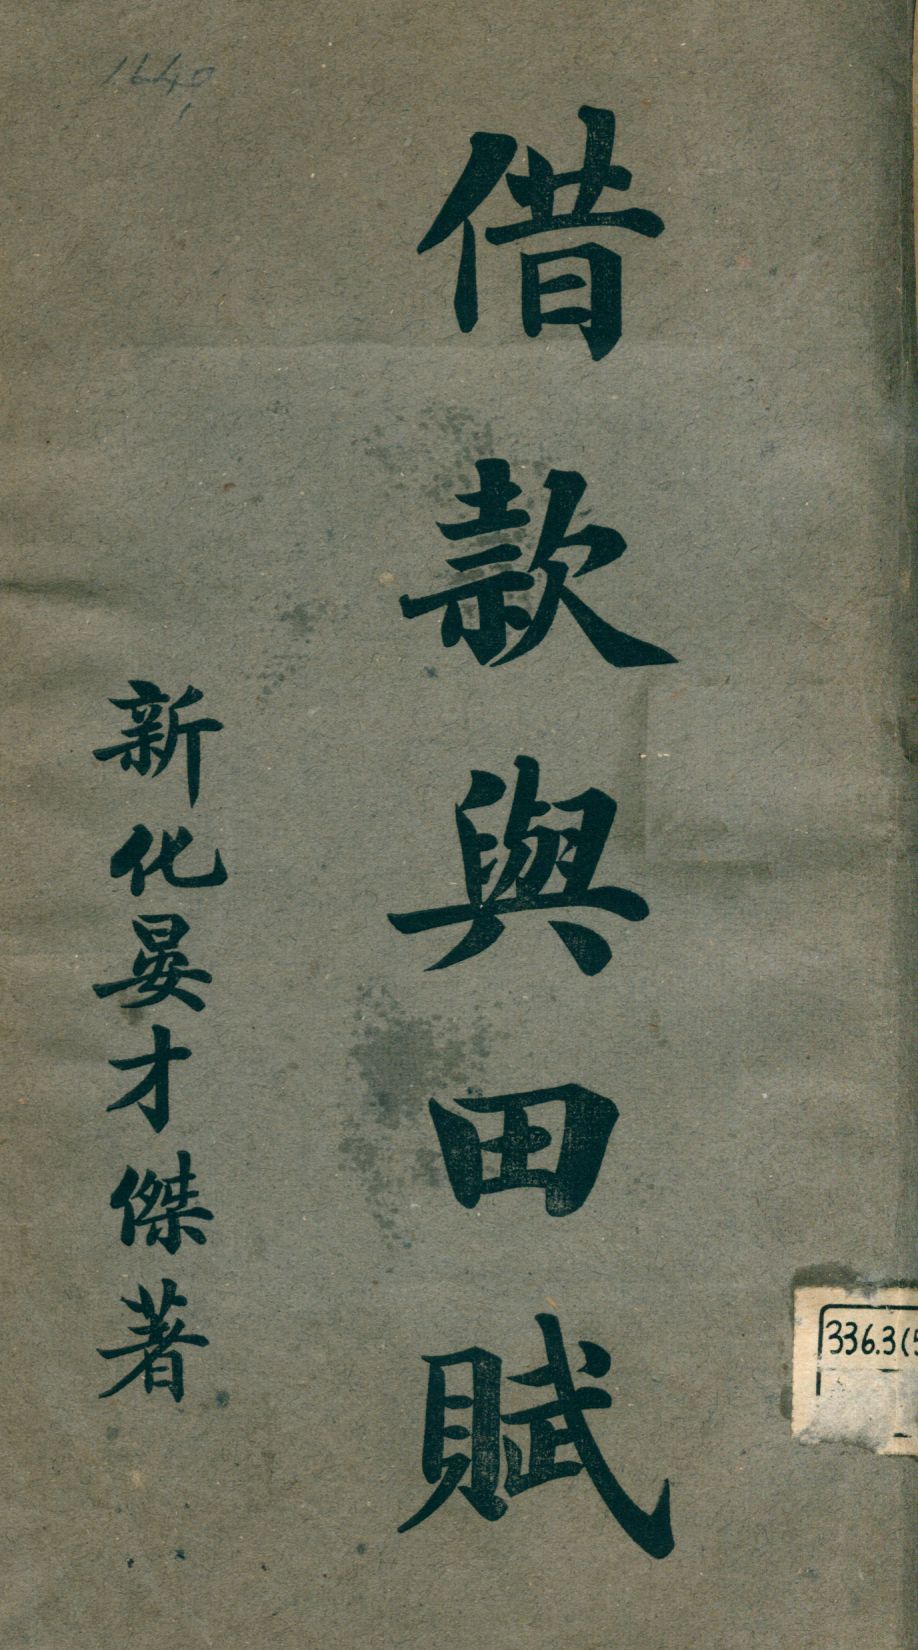 1640
借款與田賦
新化晏才傑著
336.3(5